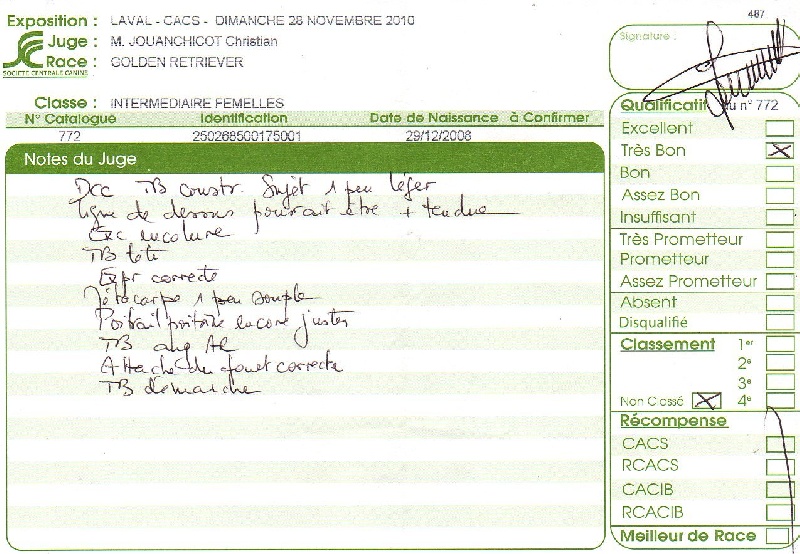 487
Exposition : LAVAL - CACS - DIMANCHE 28 NOVEMBRE 2010
Juge : M. JOUANCHICOT Christian
Race : GOLDEN RETRIEVER
SOCIÉTÉ CENTRALE CANINE
Classe : INTERMEDIAIRE FEMELLES
N° Catalogue Identification Date de Naissance à Confirmer
772 250268500175001 29/12/2008
Notes du Juge
TB constr. Sujet 1 peu léger
Ligne de dessus pourrait être + tendue
Exc encolure
TB tête
Expr correcte
Métacarpe 1 peu souple
poitrail poitrine encore justes
TB ang AR
Attache du fouet correcte
TB démarche
Signature :
Qualificatif du n° 772
Excellent
Très Bon
Bon
Assez Bon
Insuffisant
Très Prometteur
Prometteur
Assez Prometteur
Absent
Disqualifié
Classement 1er
2e
3e
Non Classé 4e
Récompense
CACS
RCACS
CACIB
RCACIB
Meilleur de Race